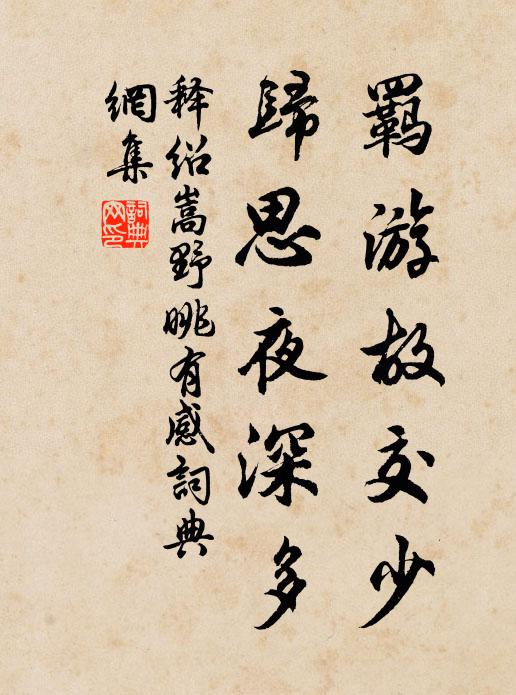 羈游故交少
歸思夜深多
释绍嵩野眺有感詞典
網集
詞典
网印